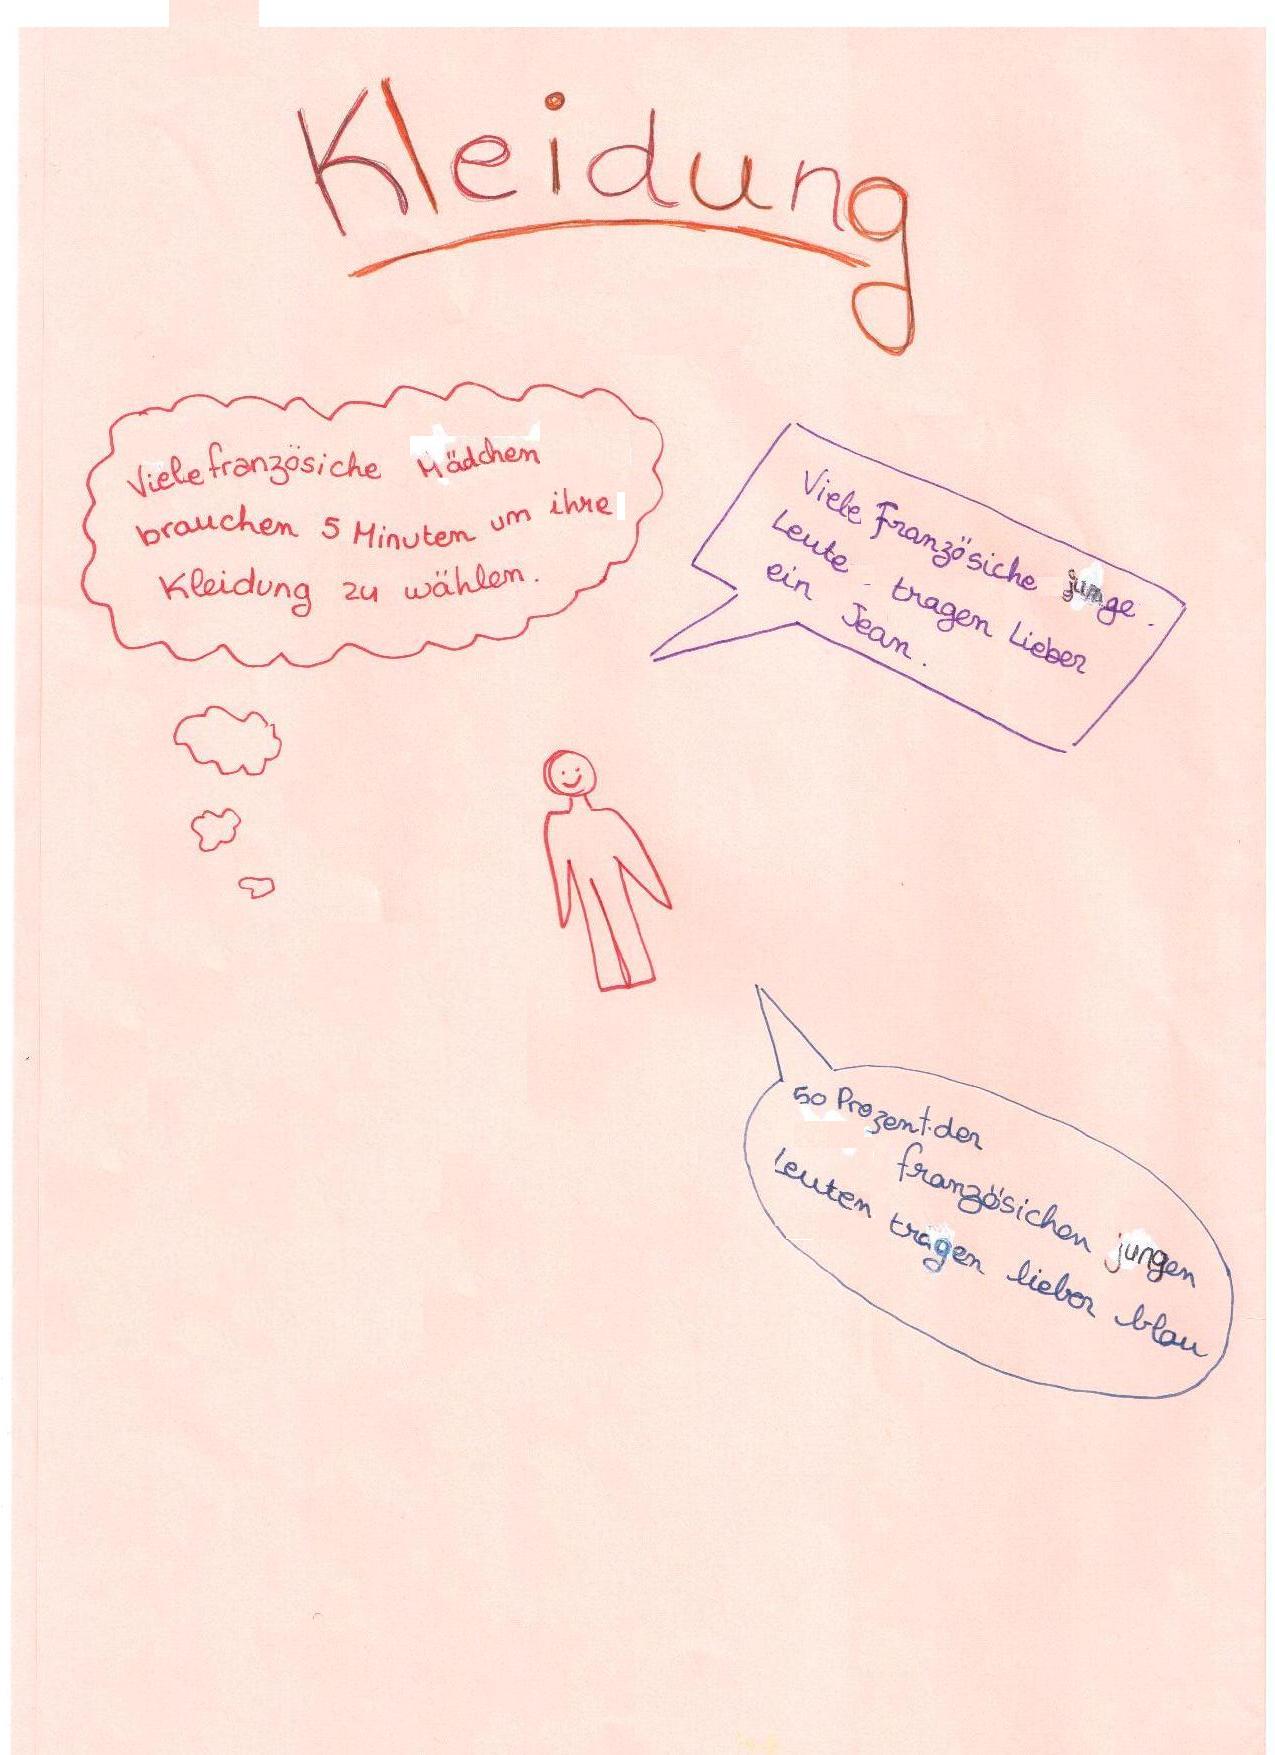 Kleidung
Viele französiche Mädchen
brauchen 5 Minuten um ihre
Kleidung zu wählen.
Viele Französiche junge.
Leute - tragen Lieber
ein Jean.
50 Prozent.der
französichen jungen
Leuten tragen lieber blau